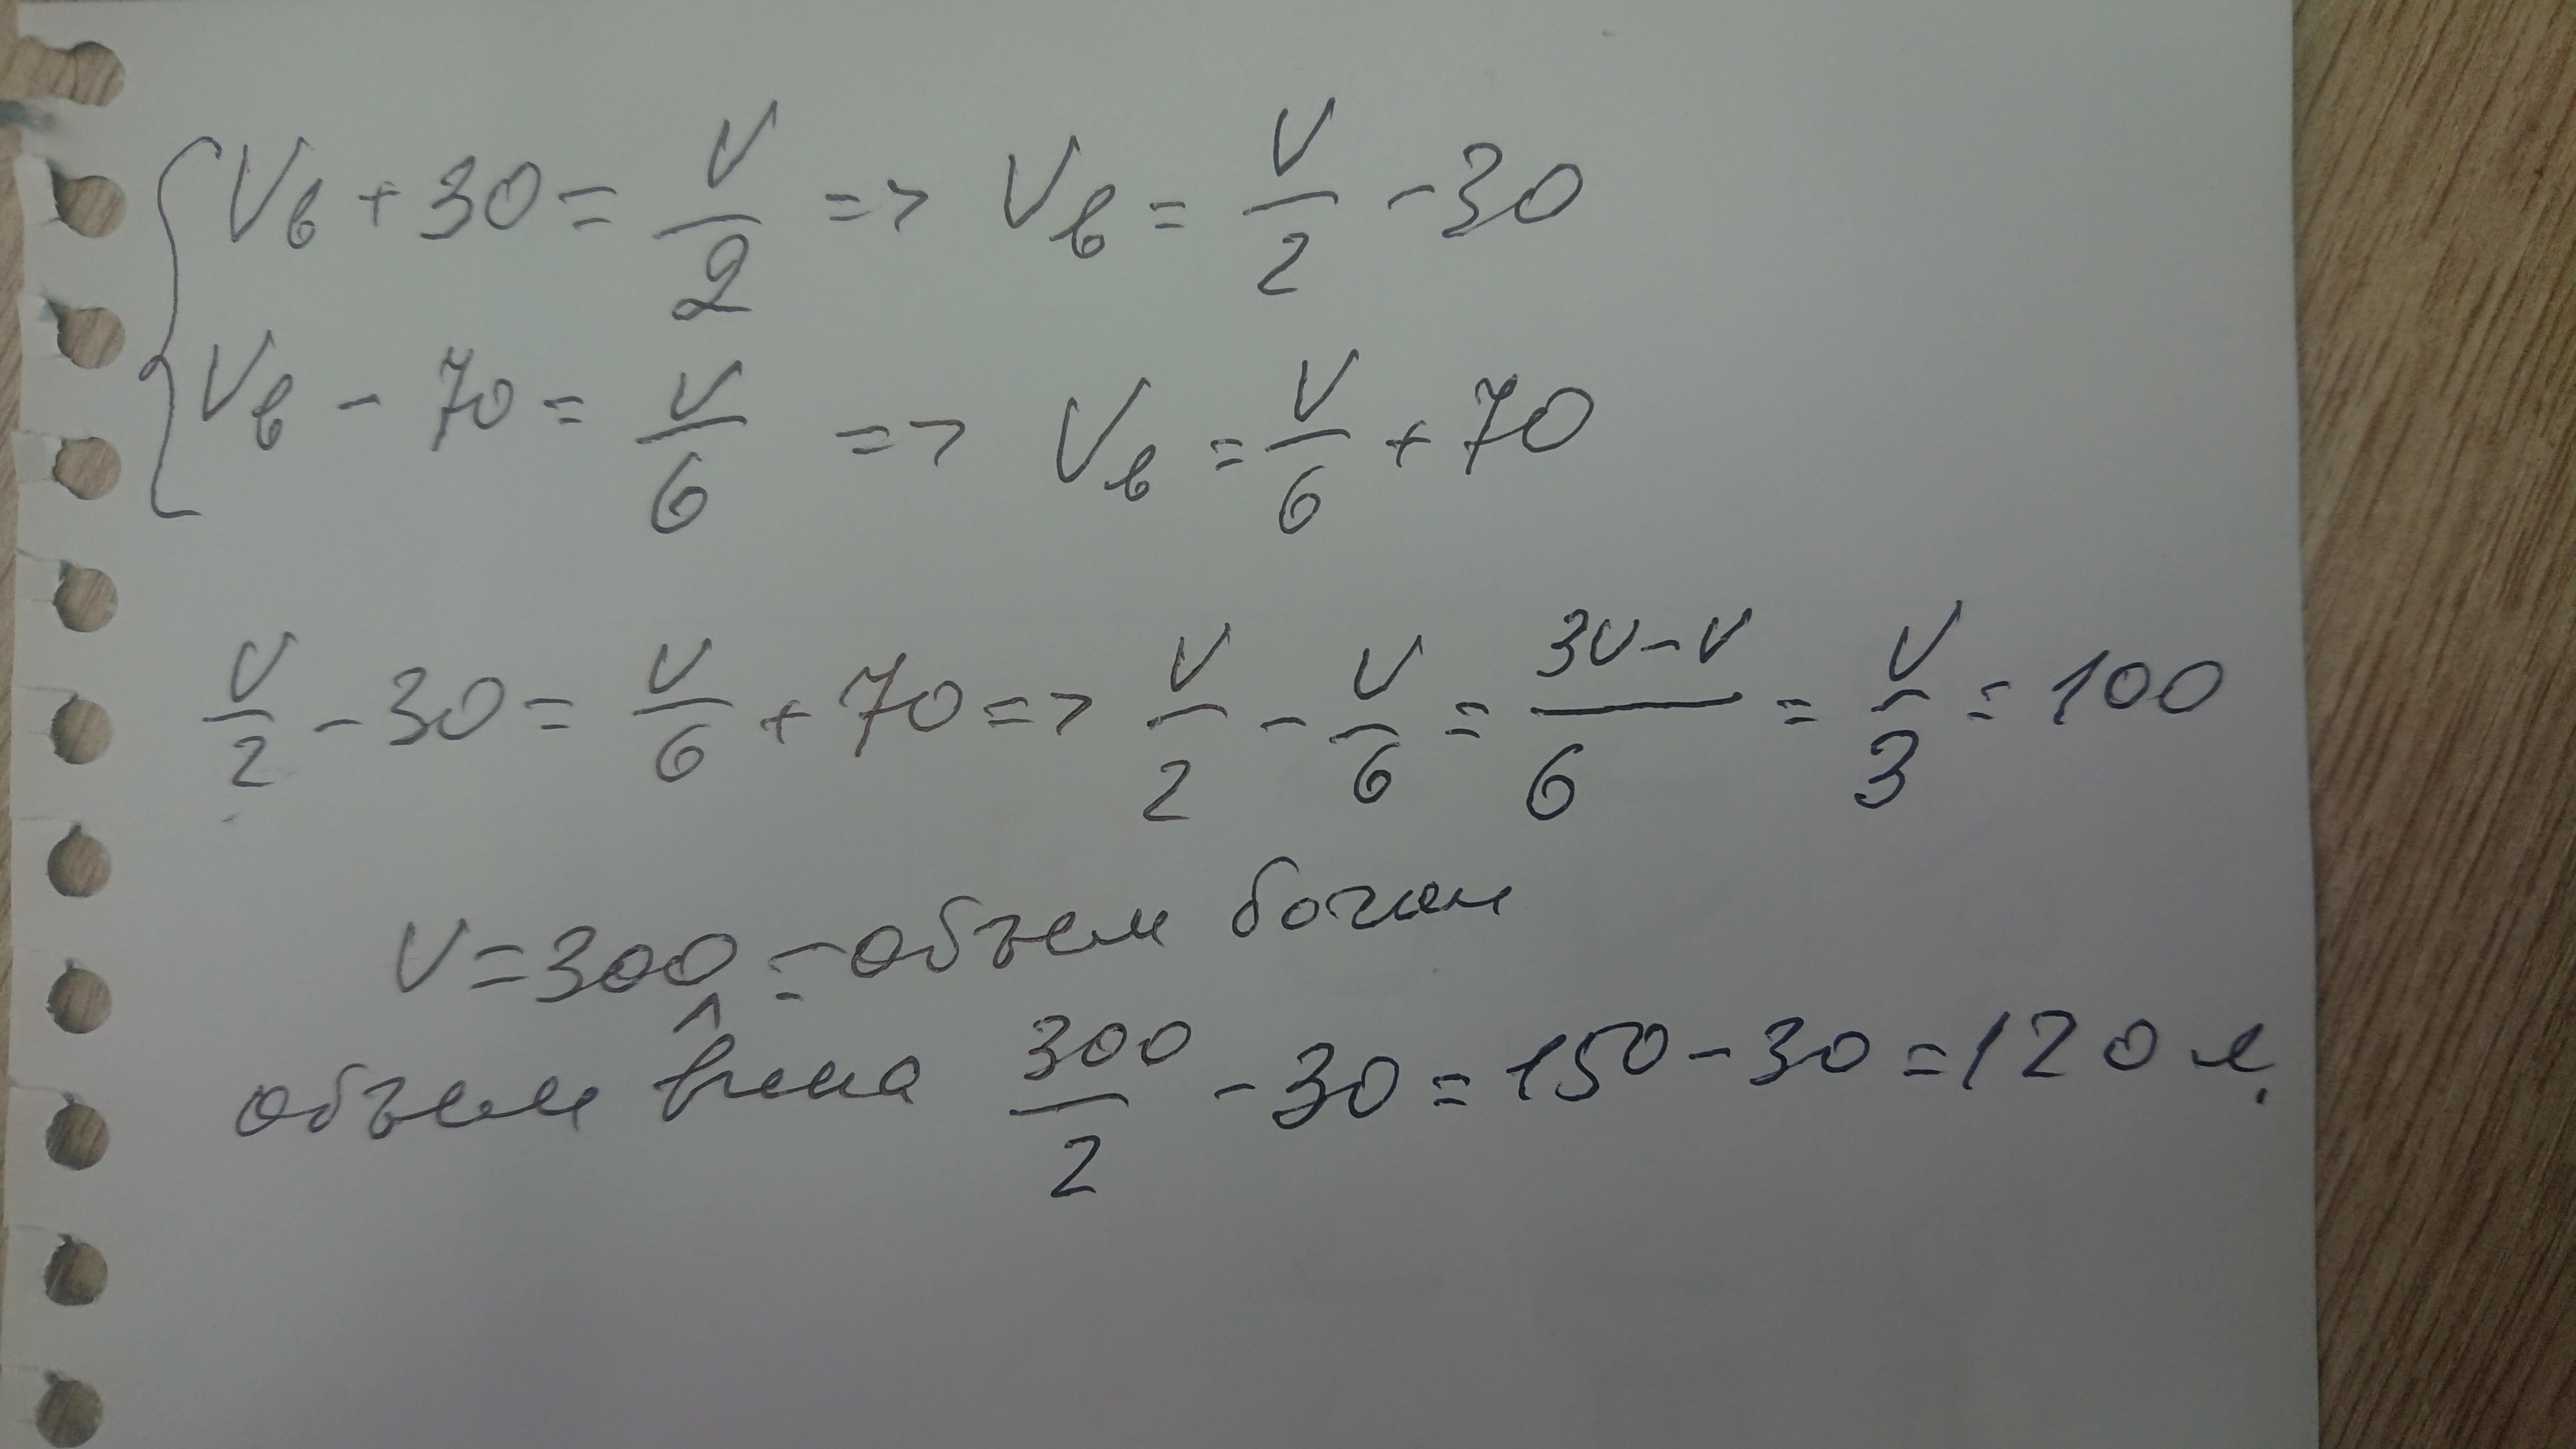 Vв + 30 = V/2 => Vв = V/2 - 30
Vв - 70 = V/6 => Vв = V/6 + 70
V/2 - 30 = V/6 + 70 => V/2 - V/6 = 3V - V/6 = V/3 = 100
V = 300 - объем бочки
объем вина 300/2 - 30 = 150 - 30 = 120 л.